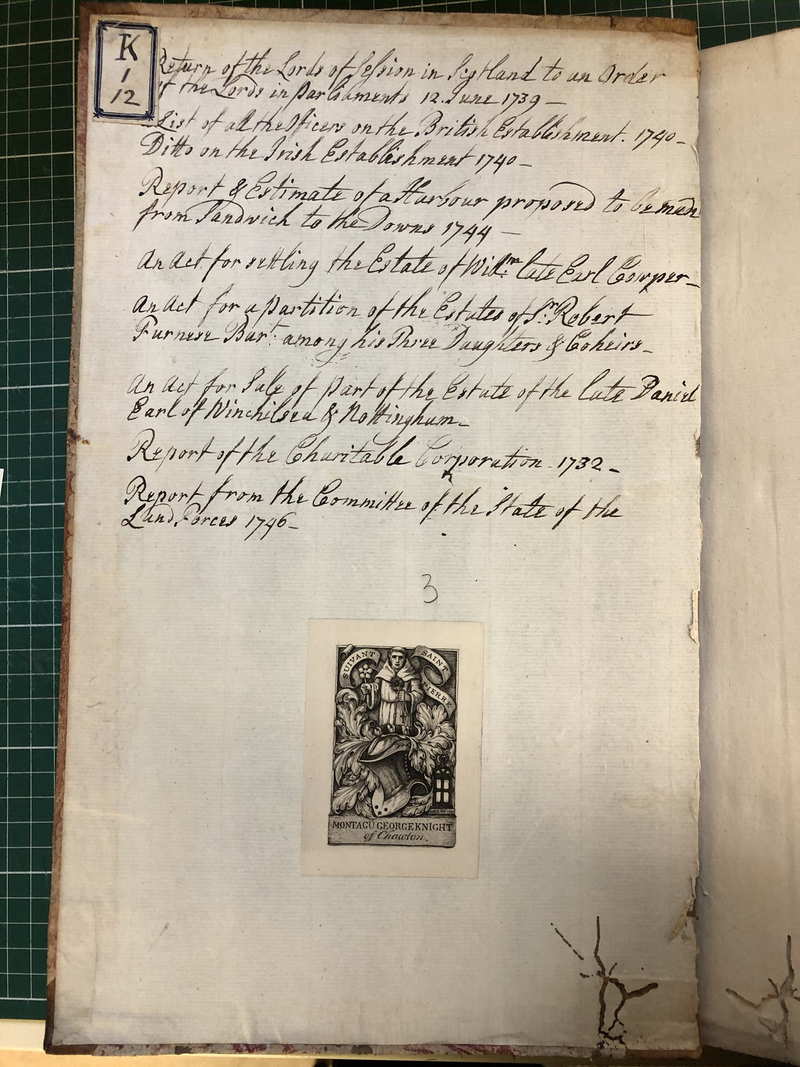 K
1
12
Return of the Lords of Session in Scotland to an Order
of the Lords in Parliaments 12. June 1739 —
List of all the Officers on the British Establishment. 1740 —
Ditto on the Irish Establishment 1740 —
Report & Estimate of a Harbour proposed to be made
from Sandwich to the Downs 1744 —
An Act for settling the Estate of Willm: late Earl Cowper —
An Act for a partition of the Estates of Sr. Robert
Furnese Bart: among his Three Daughters & Coheirs —
An Act for Sale of part of the Estate of the late Daniel
Earl of Winchilsea & Nottingham —
Report of the Charitable Corporation - 1732 —
Report from the Committee of the State of the
Land Forces 1746 —
3
SUIVANT SAINT
PIERRE
MONTAGU GEORGE KNIGHT
of Chawton.